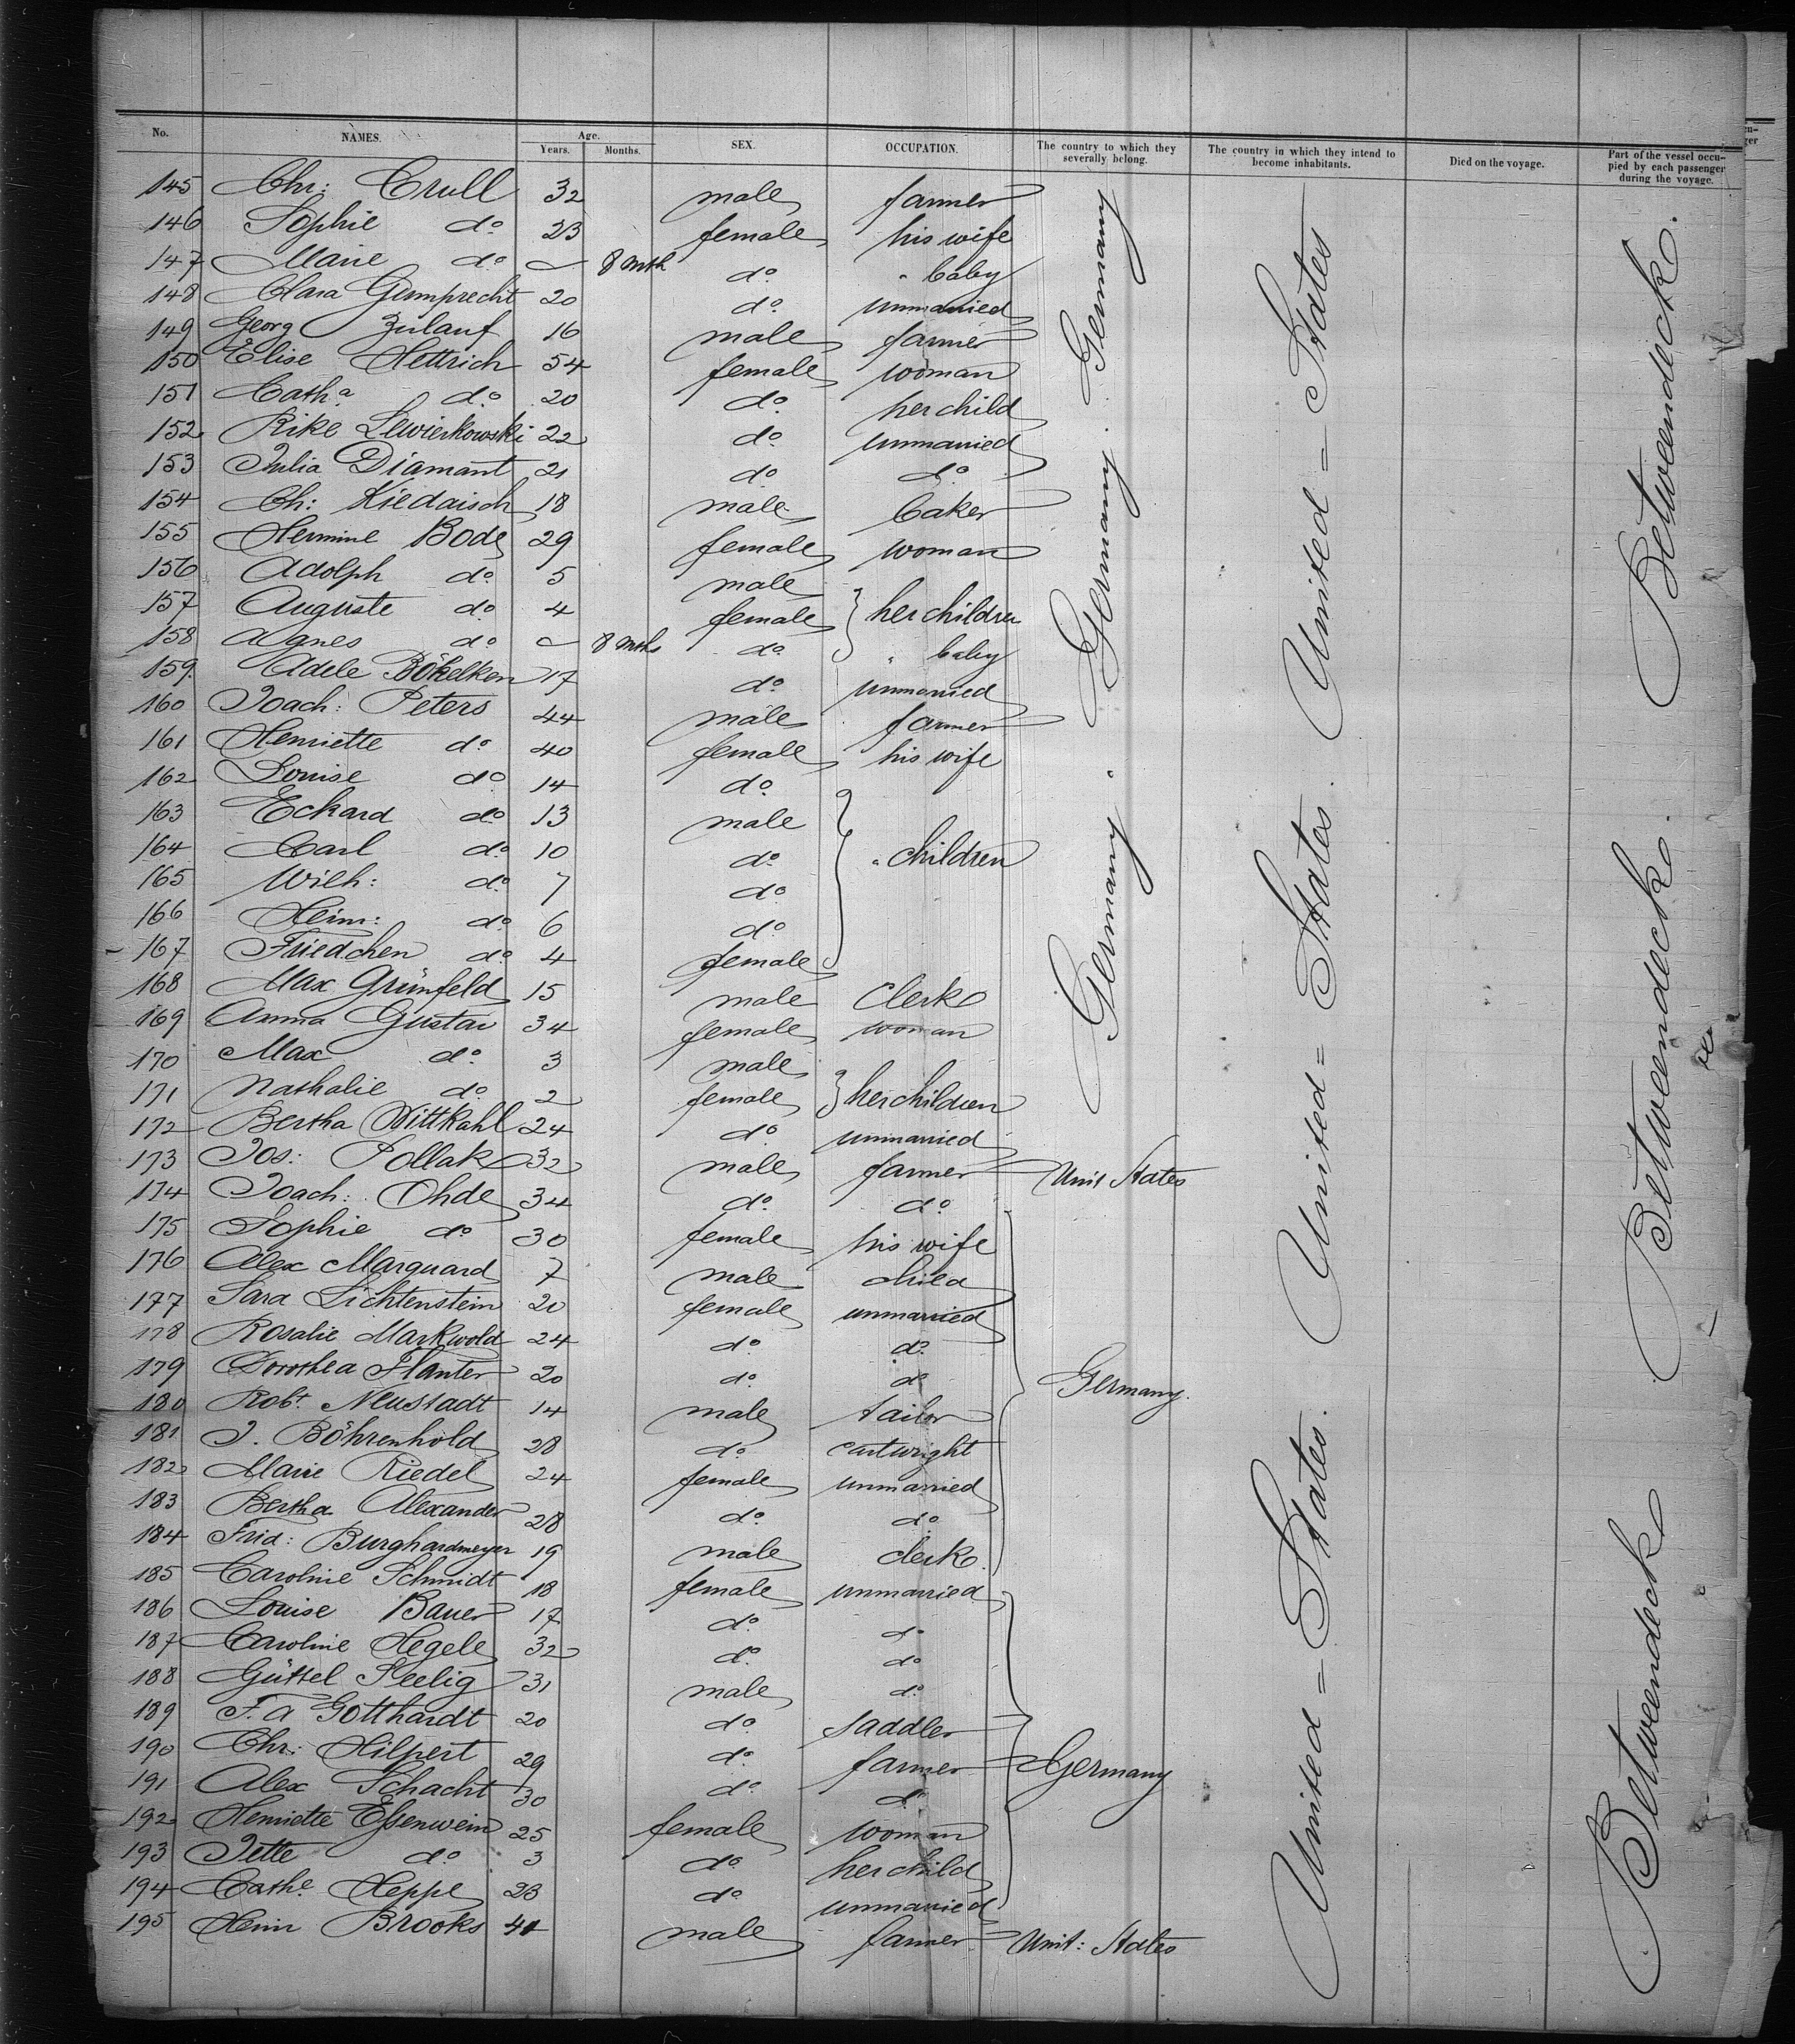 No. NAMES. Age. Years. Months. SEX. OCCUPATION. The country to which they severally belong. The country in which they intend to become inhabitants. Died on the voyage. Part of the vessel occupied by each passenger during the voyage.
145 Chr: Crull 32 male farmer
146 Sophie do 23 female his wife
147 Marie do 8 mth do " baby
148 Clara Gumprecht 20 do unmarried
149 Georg Zulauf 16 male farmer
150 Elise Hettrich 54 female woman
151 Catha do 20 do her child
152 Rike Lewierkowski 22 do unmarried
153 Julia Diamant 21 do do
154 Ch: Kiedaisch 18 male baker
155 Hermine Bode 29 female woman
156 Adolph do 5 male
157 Auguste do 4 female her children
158 Agnes do 8 mths do " baby
159. Adele Bökelken 17 do unmarried
160 Joach: Peters 44 male farmer
161 Henriette do 40 female his wife
162 Louise do 14 do
163 Eckard do 13 male
164 Carl do 10 do " children
165 Wilh: do 7 do
166 Heinr: do 6 do
167 Friedchen do 4 female
168 Max Grünfeld 15 male Clerk
169 Anna Gustav 34 female woman
170 Max do 3 male
171 Nathalie do 2 female her children
172 Bertha Wittkahl 24 do unmarried
173 Jos: Pollak 32 male farmer Unit States
174 Joach: Ohde 34 do do
175 Sophie do 30 female his wife
176 Alex Marquard 7 male child
177 Sara Lichtenstein 20 female unmarried
178 Rosalie Markwold 24 do do
179 Dorothea Flanter 20 do do Germany.
180 Robt. Neustadt 14 male tailor
181 J. Böhrenhold 28 do cartwright
182 Marie Riedel 24 female unmarried
183 Bertha Alexander 28 do do
184 Frid: Burghardmeyer 19 male clerk
185 Caroline Schmidt 18 female unmarried
186 Louise Bauer 17 do do
187 Caroline Hegele 32 do do
188 Güttel Seelig 31 male do
189 F. A Gotthardt 20 do saddler
190 Chr: Hilpert 29 do farmer Germany
191 Alex Schacht 30 do do
192 Henriette Essenwein 25 female woman
193 Jette do 3 do her child
194 Cathe Heppe 23 do unmarried
195 Heinr Brooks 41 male farmer Unit: States
Germany. Germany. Germany
United=States. United=States. United=States
Betweendeck. Betweendeck. Betweendeck.